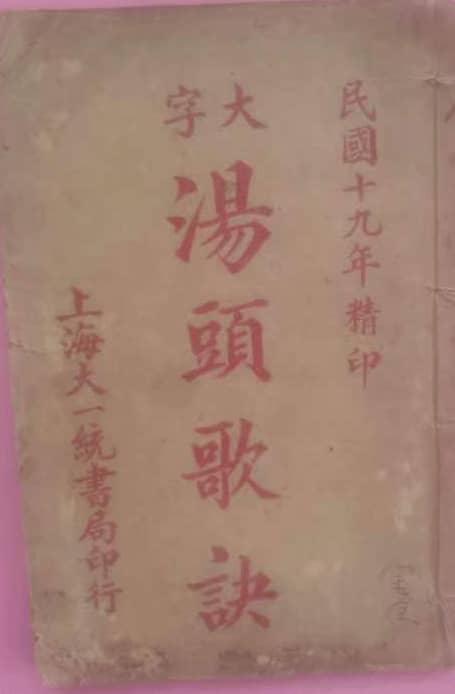 民國十九年精印
大字
湯頭歌訣
上海大一統書局印行